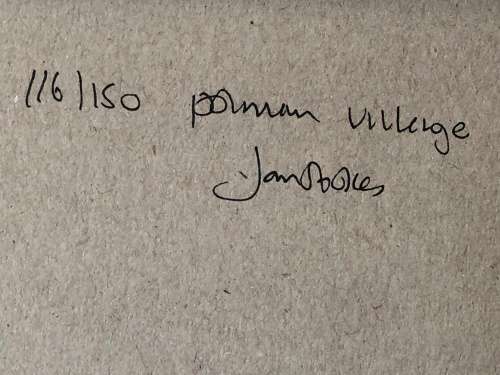 116/150 porman village
Jan Stokes